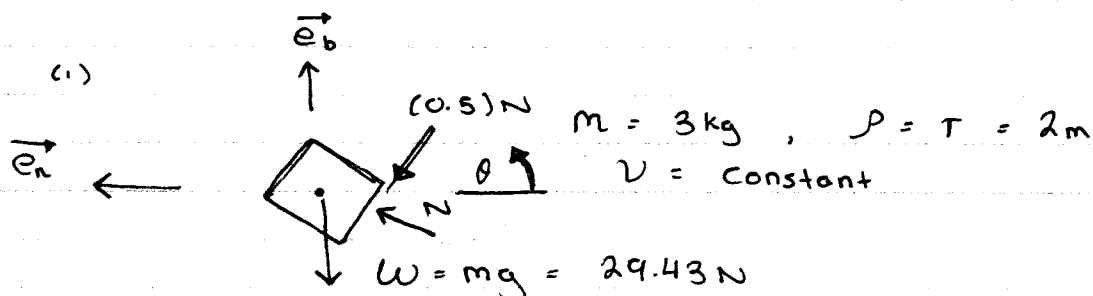 e_b
(1)
(0.5)N
m = 3kg , ρ = r = 2m
e_n
θ
v = constant
N
W = mg = 29.43 N